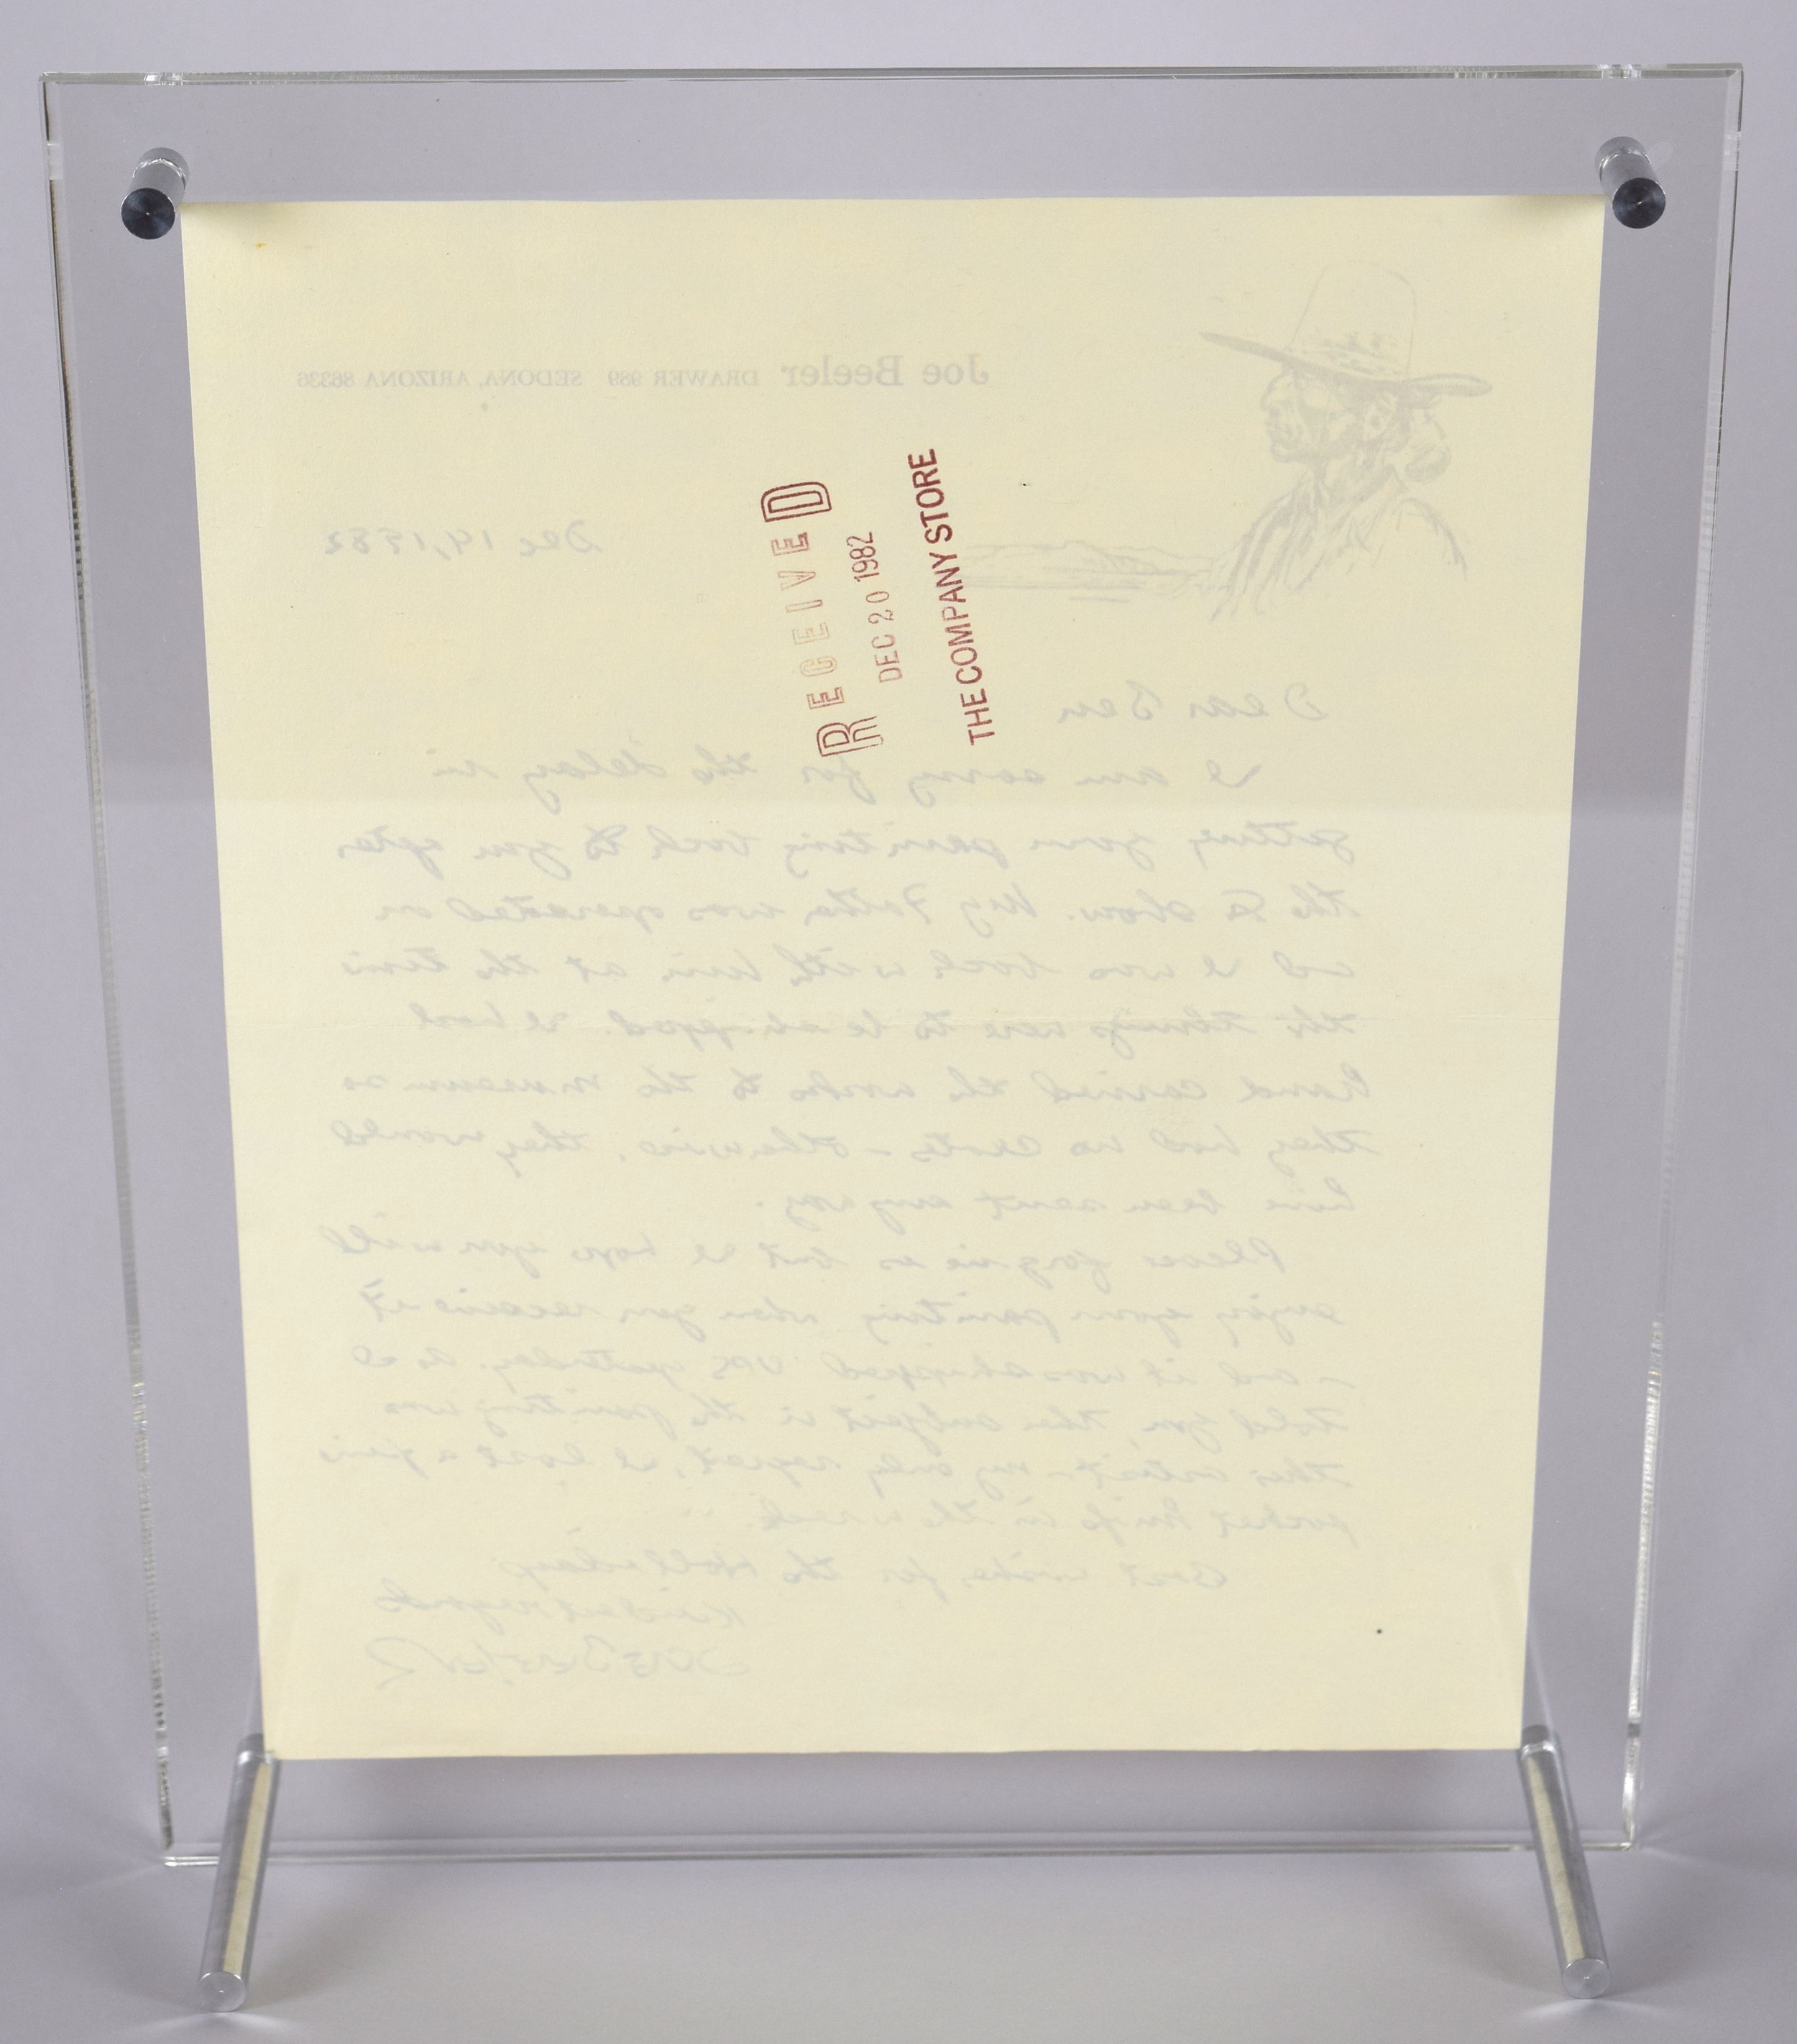 Joe Beeler DRAWER 989 SEDONA, ARIZONA 86336
Dec 14, 1982
RECEIVED
DEC 20 1982
THE COMPANY STORE
Dear Ben
I am sorry for the delay in
getting your painting back to you after
the show. My Father was operated on
and I was back with him at the time
the things were to be shipped. I had
hand carried the works to the museum so
they had no crates - otherwise, they would
have been sent anyway.
Please forgive us but I hope you will
enjoy your painting when you receive it
- and it was shipped UPS yesterday. As I
told you, the subject in the painting was
this artist - my only regret, I lost a fine
pocket knife in the wreck.
Best wishes for the Holidays
Kindest regards
Joe Beeler